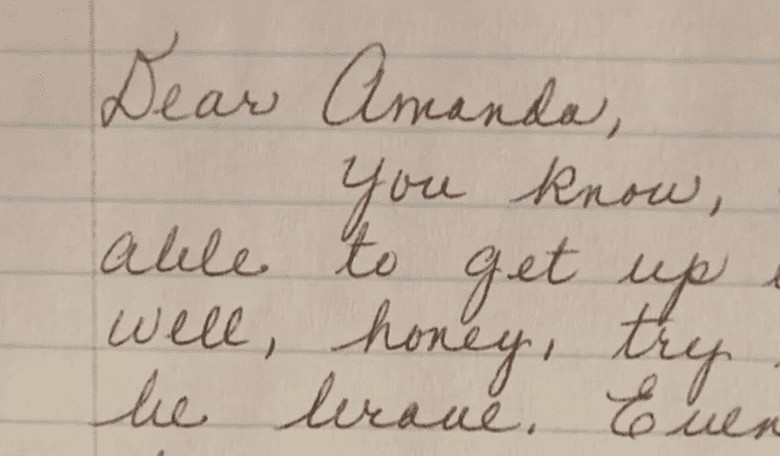 Dear Amanda,
You know,
able to get up
well, honey, try
be brave. Even